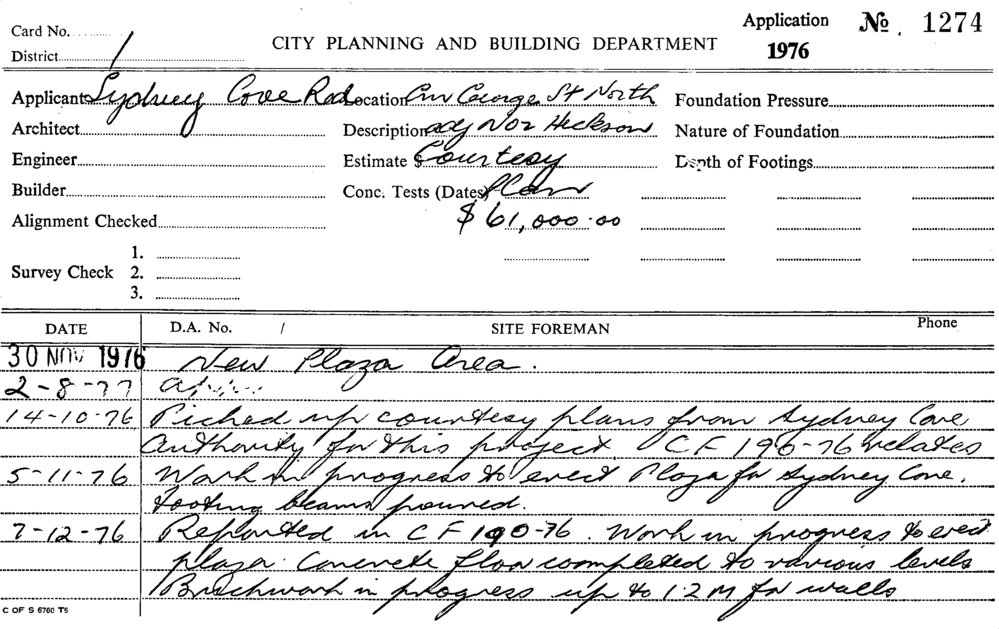 Card No.
District /
CITY PLANNING AND BUILDING DEPARTMENT
Application № 1274
1976
Applicant Sydney Cove Red Location Cnr George St North Foundation Pressure
Architect Description adj No 2 Hickson Nature of Foundation
Engineer Estimate $ Courtesy Depth of Footings
Builder Conc. Tests (Dates) Plan
Alignment Checked $61,000.00
Survey Check 1.
2.
3.
DATE D.A. No. / SITE FOREMAN Phone
30 NOV 1976 New Plaza Area.
2-8-77
14-10-76 Picked up courtesy plans from Sydney Cove
Authority for this project CF 190-76 relates
5-11-76 Work in progress to erect Plaza for Sydney Cove.
Footing beams poured.
7-12-76 Reported in CF 190-76. Work in progress to erect
plaza. Concrete floor completed to various levels
Brickwork in progress up to 1.2M for walls
C OF S 6760 T5